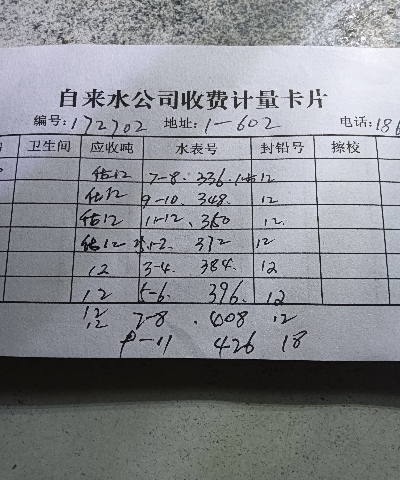 自来水公司收费计量卡片
编号: 172702 地址: 1-602 电话: 186
卫生间 应收吨 水表号 封铅号 擦校
估12 7-8. 336. 12
估12 9-10. 348. 12
估12 11-12. 360 12.
估12 1-2. 372 12
12 3-4. 384. 12
12 5-6. 396. 12
12 7-8. 408 12
12
9-11 426 18